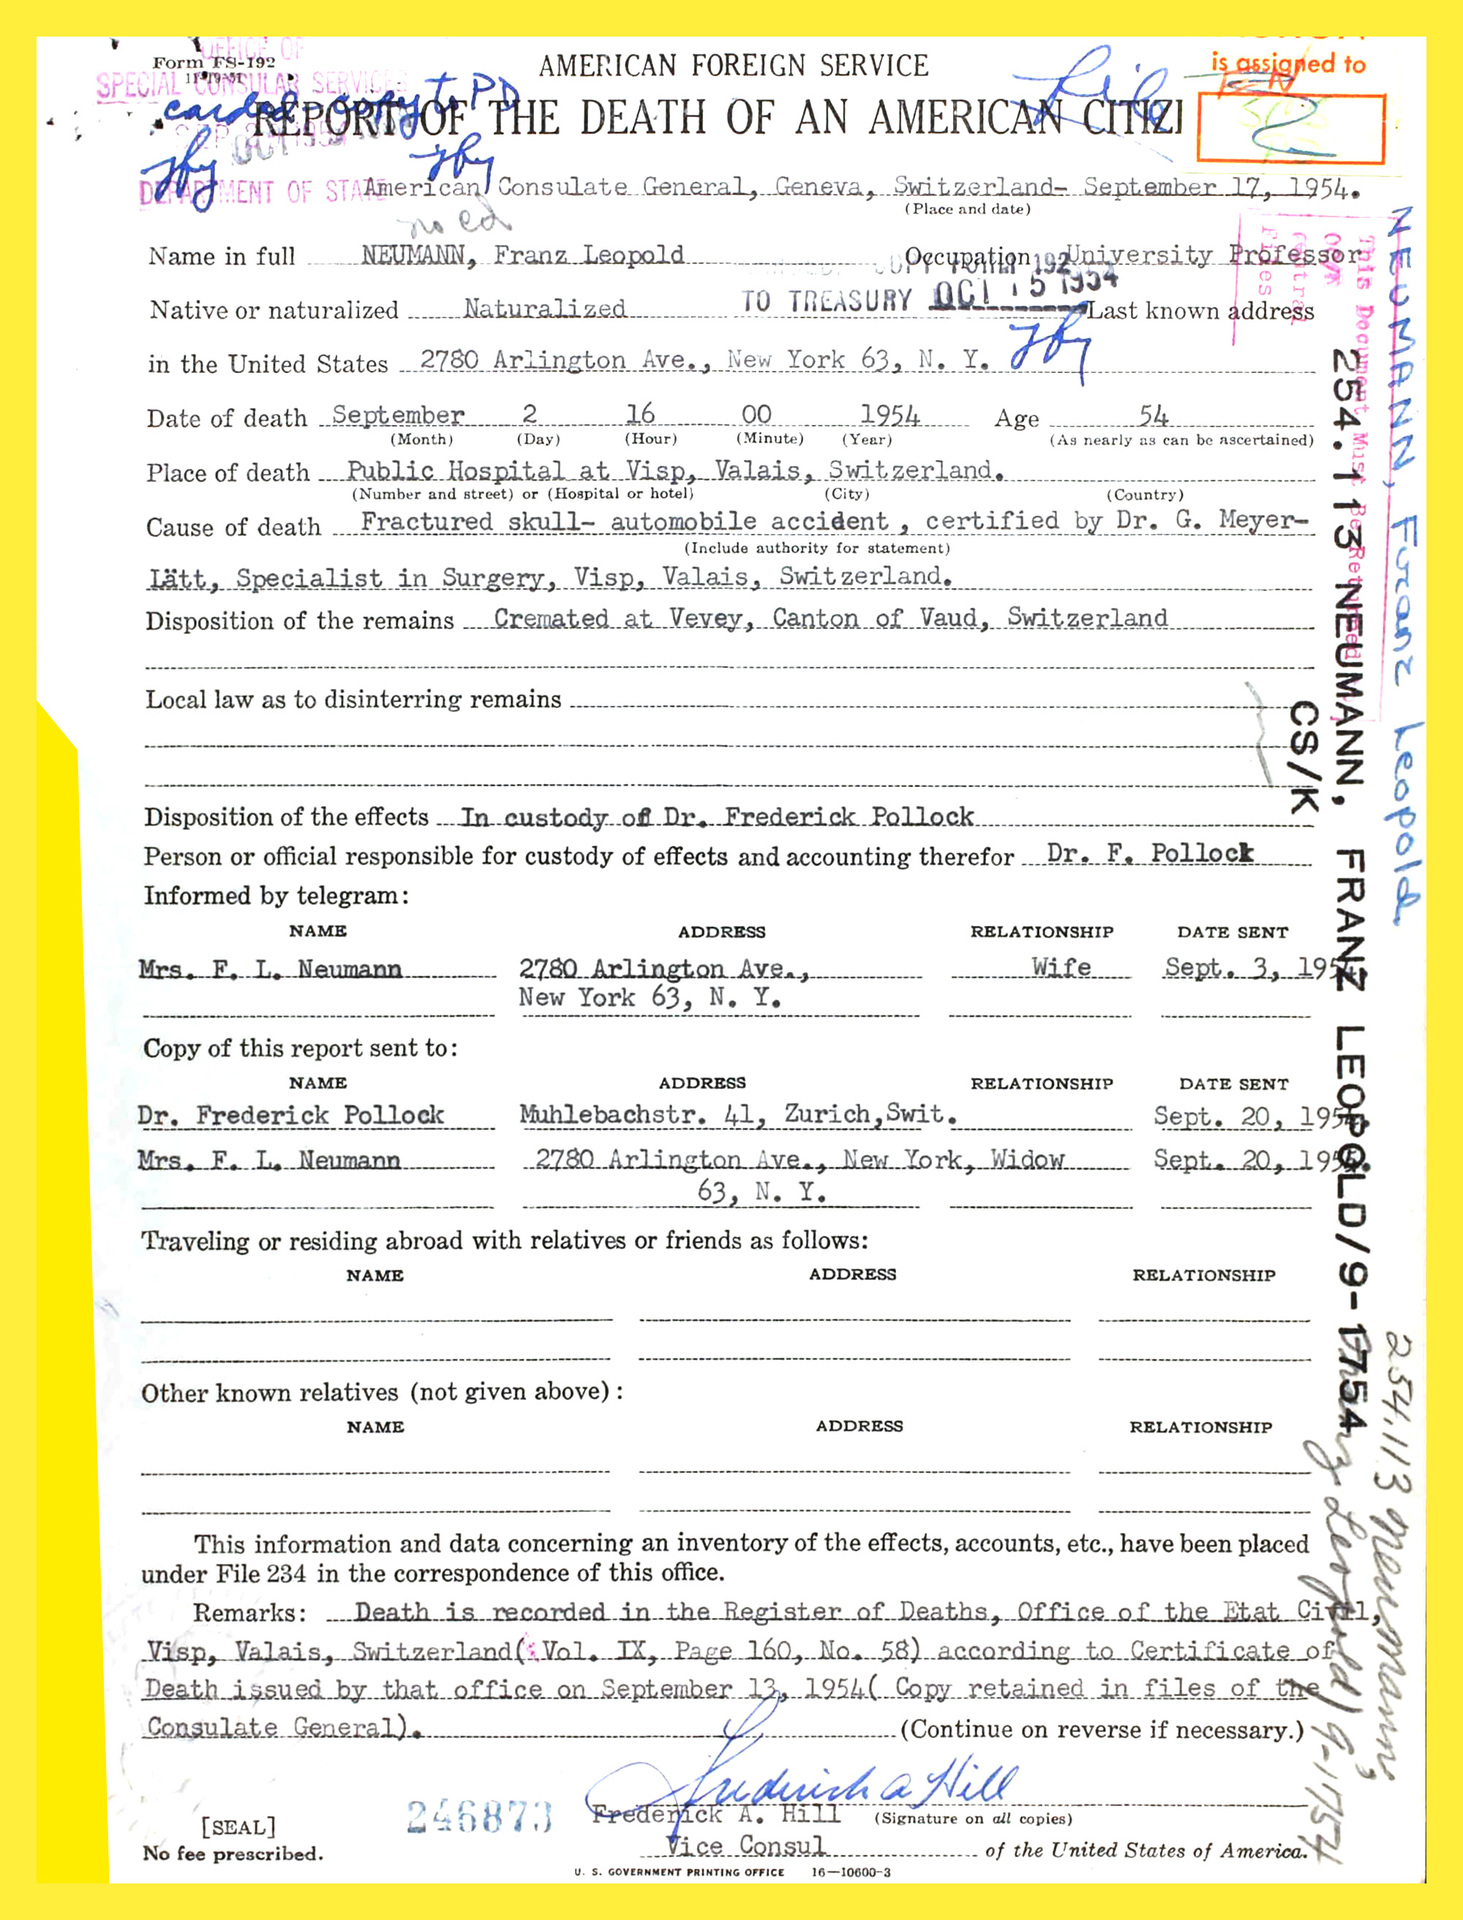 OFFICE OF
Form FS-192
SPECIAL CONSULAR SERVICES
AMERICAN FOREIGN SERVICE
File
is assigned to
carded copy to PD
REPORT OF THE DEATH OF AN AMERICAN CITIZ
DEPARTMENT OF STATE
American Consulate General, Geneva, Switzerland- September 17, 1954.
(Place and date)
no cd
Name in full NEUMANN, Franz Leopold Occupation University Professor
COPY FORM 192
TO TREASURY OCT 15 1954
Native or naturalized Naturalized Last known address
in the United States 2780 Arlington Ave., New York 63, N. Y.
Date of death September 2 16 00 1954 Age 54
(Month) (Day) (Hour) (Minute) (Year) (As nearly as can be ascertained)
Place of death Public Hospital at Visp, Valais, Switzerland.
(Number and street) or (Hospital or hotel) (City) (Country)
Cause of death Fractured skull- automobile accident, certified by Dr. G. Meyer-
(Include authority for statement)
Lätt, Specialist in Surgery, Visp, Valais, Switzerland.
Disposition of the remains Cremated at Vevey, Canton of Vaud, Switzerland
Local law as to disinterring remains
Disposition of the effects In custody of Dr. Frederick Pollock
Person or official responsible for custody of effects and accounting therefor Dr. F. Pollock
Informed by telegram:
NAME ADDRESS RELATIONSHIP DATE SENT
Mrs. F. L. Neumann 2780 Arlington Ave., Wife Sept. 3, 195
New York 63, N. Y.
Copy of this report sent to:
NAME ADDRESS RELATIONSHIP DATE SENT
Dr. Frederick Pollock Muhlebachstr. 41, Zurich,Swit. Sept. 20, 195
Mrs. F. L. Neumann 2780 Arlington Ave., New York, Widow Sept. 20, 195
63, N. Y.
Traveling or residing abroad with relatives or friends as follows:
NAME ADDRESS RELATIONSHIP
Other known relatives (not given above):
NAME ADDRESS RELATIONSHIP
This information and data concerning an inventory of the effects, accounts, etc., have been placed
under File 234 in the correspondence of this office.
Remarks: Death is recorded in the Register of Deaths, Office of the Etat Civil,
Visp, Valais, Switzerland( Vol. IX, Page 160, No. 58) according to Certificate of
Death issued by that office on September 13, 1954( Copy retained in files of the
Consulate General). (Continue on reverse if necessary.)
Frederick A Hill
246873
Frederick A. Hill (Signature on all copies)
[SEAL]
Vice Consul of the United States of America.
No fee prescribed.
U. S. GOVERNMENT PRINTING OFFICE 16—10600-3
This Document Must Be Returned
Central
Files
NEUMANN, Franz Leopold
254.113 NEUMANN, FRANZ LEOPOLD/9-1754
CS/K
254.113 Neumann,
Franz Leopold/9-1754